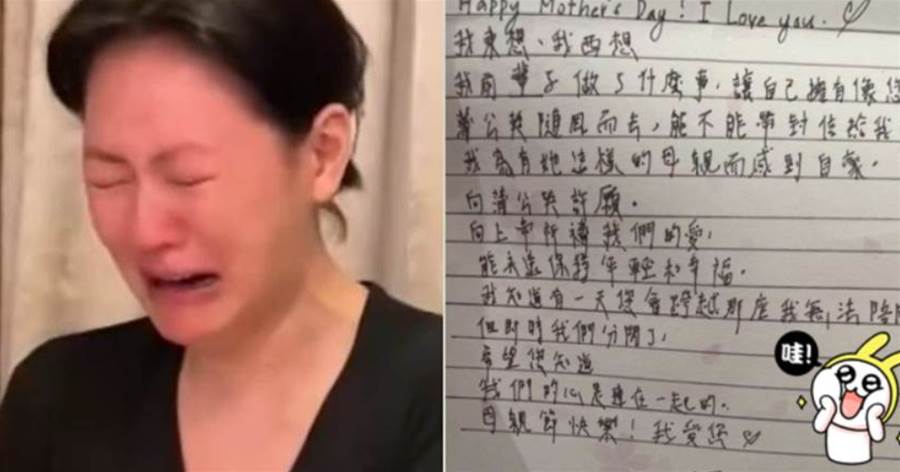 Happy Mother's Day! I Love you.
我東想、我西想
我前輩子做了什麼事,讓自己擁有像您
蒲公英隨風而去,能不能帶封信給我
我為有她這樣的母親而感到自豪。
向蒲公英許願。
向上帝祈禱我們的愛,
能永遠保持年輕和幸福。
我知道有一天您會跨越那座我無法陪
但即時我們分開了,
希望您知道
我們的心是連在一起的。
母親節快樂!我愛您
哇!